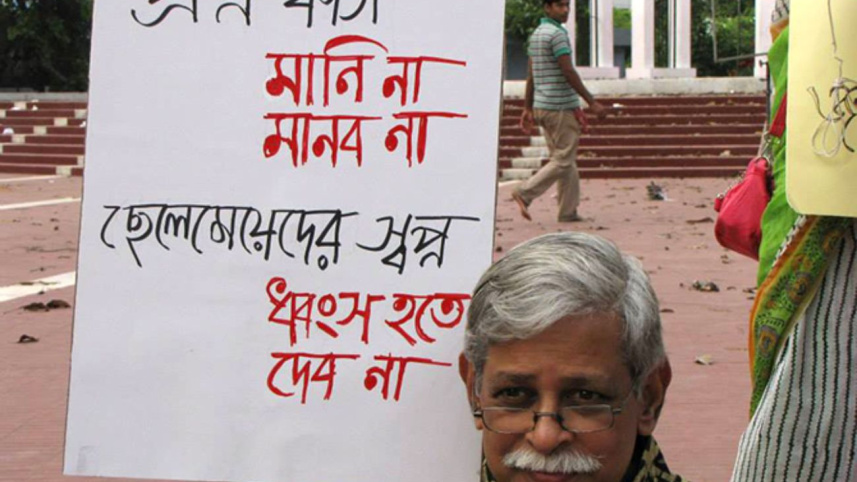 মানি না
মানব না
ছেলেমেয়েদের স্বপ্ন
ধ্বংস হতে
দেব না